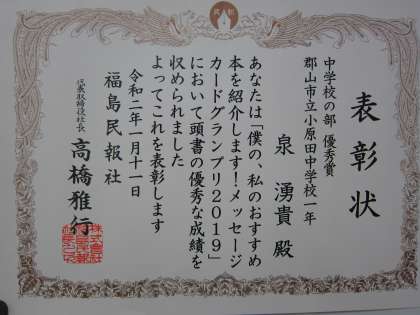 表彰状
中学校の部 優秀賞
郡山市立小原田中学校一年
泉 湧貴 殿
あなたは「僕の、私のおすすめ
本を紹介します!メッセージ
カードグランプリ2019」
において頭書の優秀な成績を
収められました
よってこれを表彰します
令和二年一月十一日
福島民報社
代表取締役社長 高橋雅行